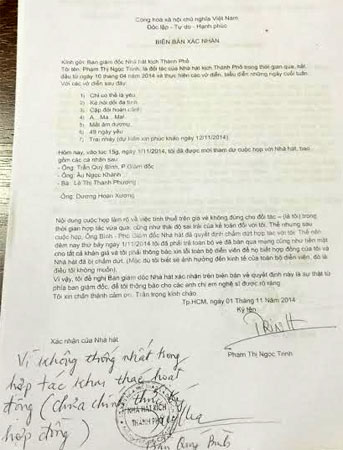 Cộng hòa xã hội chủ nghĩa Việt Nam
Độc lập - Tự do - Hạnh phúc
BIÊN BẢN XÁC NHẬN
Kính gởi: Ban giám đốc Nhà hát kịch Thành Phố
Tôi tên: Phạm Thị Ngọc Trinh, là đối tác của Nhà hát kịch Thành Phố trong thời gian qua, bắt
đầu từ ngày 10 tháng 04 năm 2014 và thực hiện các vở diễn, biểu diễn những ngày cuối tuần.
Với các vở diễn sau đây
1) Chỉ có thể là yêu
2) Kẻ nói dối đa tình
3) Cặp đôi hoàn
4) A...Ma...Ma!
5) Mắt âm dương
6) 49 ngày yêu
7) Trai nhảy (dự kiến xin phúc khảo ngày 12/11/2014)
Hôm nay, vào lúc 15g, ngày 1/11/2014, tôi đã được mời tham dự cuộc họp với Nhà hát, bao
gồm các cá nhân sau
- Ông: Trần Quý Bình, P.Giám đốc
- Ông: Âu Ngọc Khánh
- Bà: Lê Thị Thanh Phương
- Ông: Dương Hoàn Xương
Nội dung cuộc họp làm rõ về việc tính thuế trên giá vé không đúng cho đối tác – (là tôi) trong
thời gian hợp tác vừa qua, cũng như thái độ sai trái của kế toán đối với tôi. Thế nhưng sau
cuộc họp, Ông Bình - Phó Giám đốc Nhà hát đã quyết định chấm dứt hợp tác với tôi. Thế nên
đêm nay thứ bảy ngày 1/11/2014 tôi đã phải trả toàn bộ vé đã bán qua mạng cũng như tiền mặt
cho tất cả khán giả và tôi phải thông báo, xin lỗi toàn bộ diễn viên để họ biết hợp đồng của tôi và
Nhà hát đã bị chấm dứt. (Mặc dù tôi biết sẽ ảnh hưởng đến kinh tế của toàn bộ diễn viên, đó là
điều tôi không muốn).
Vì vậy, tôi đề nghị Ban giám đốc Nhà hát xác nhận trên biên bản về quyết định này là sự thật từ
phía ban giám đốc, để tôi thông báo cho các anh chị em nghệ sĩ được rõ ràng.
Tôi xin chân thành cảm ơn. Trân trọng kính chào.
Tp.HCM, ngày 01 Tháng 11 Năm 2014
Ký tên
TRINH
Phạm Thị Ngọc Trinh
Xác nhận của Nhà hát
Vì không thống nhất trong
hợp tác khai thác hoạt
động (chưa chính thức ký
hợp đồng)
NHÀ HÁT KỊCH
THÀNH PHỐ
Trần Quý Bình